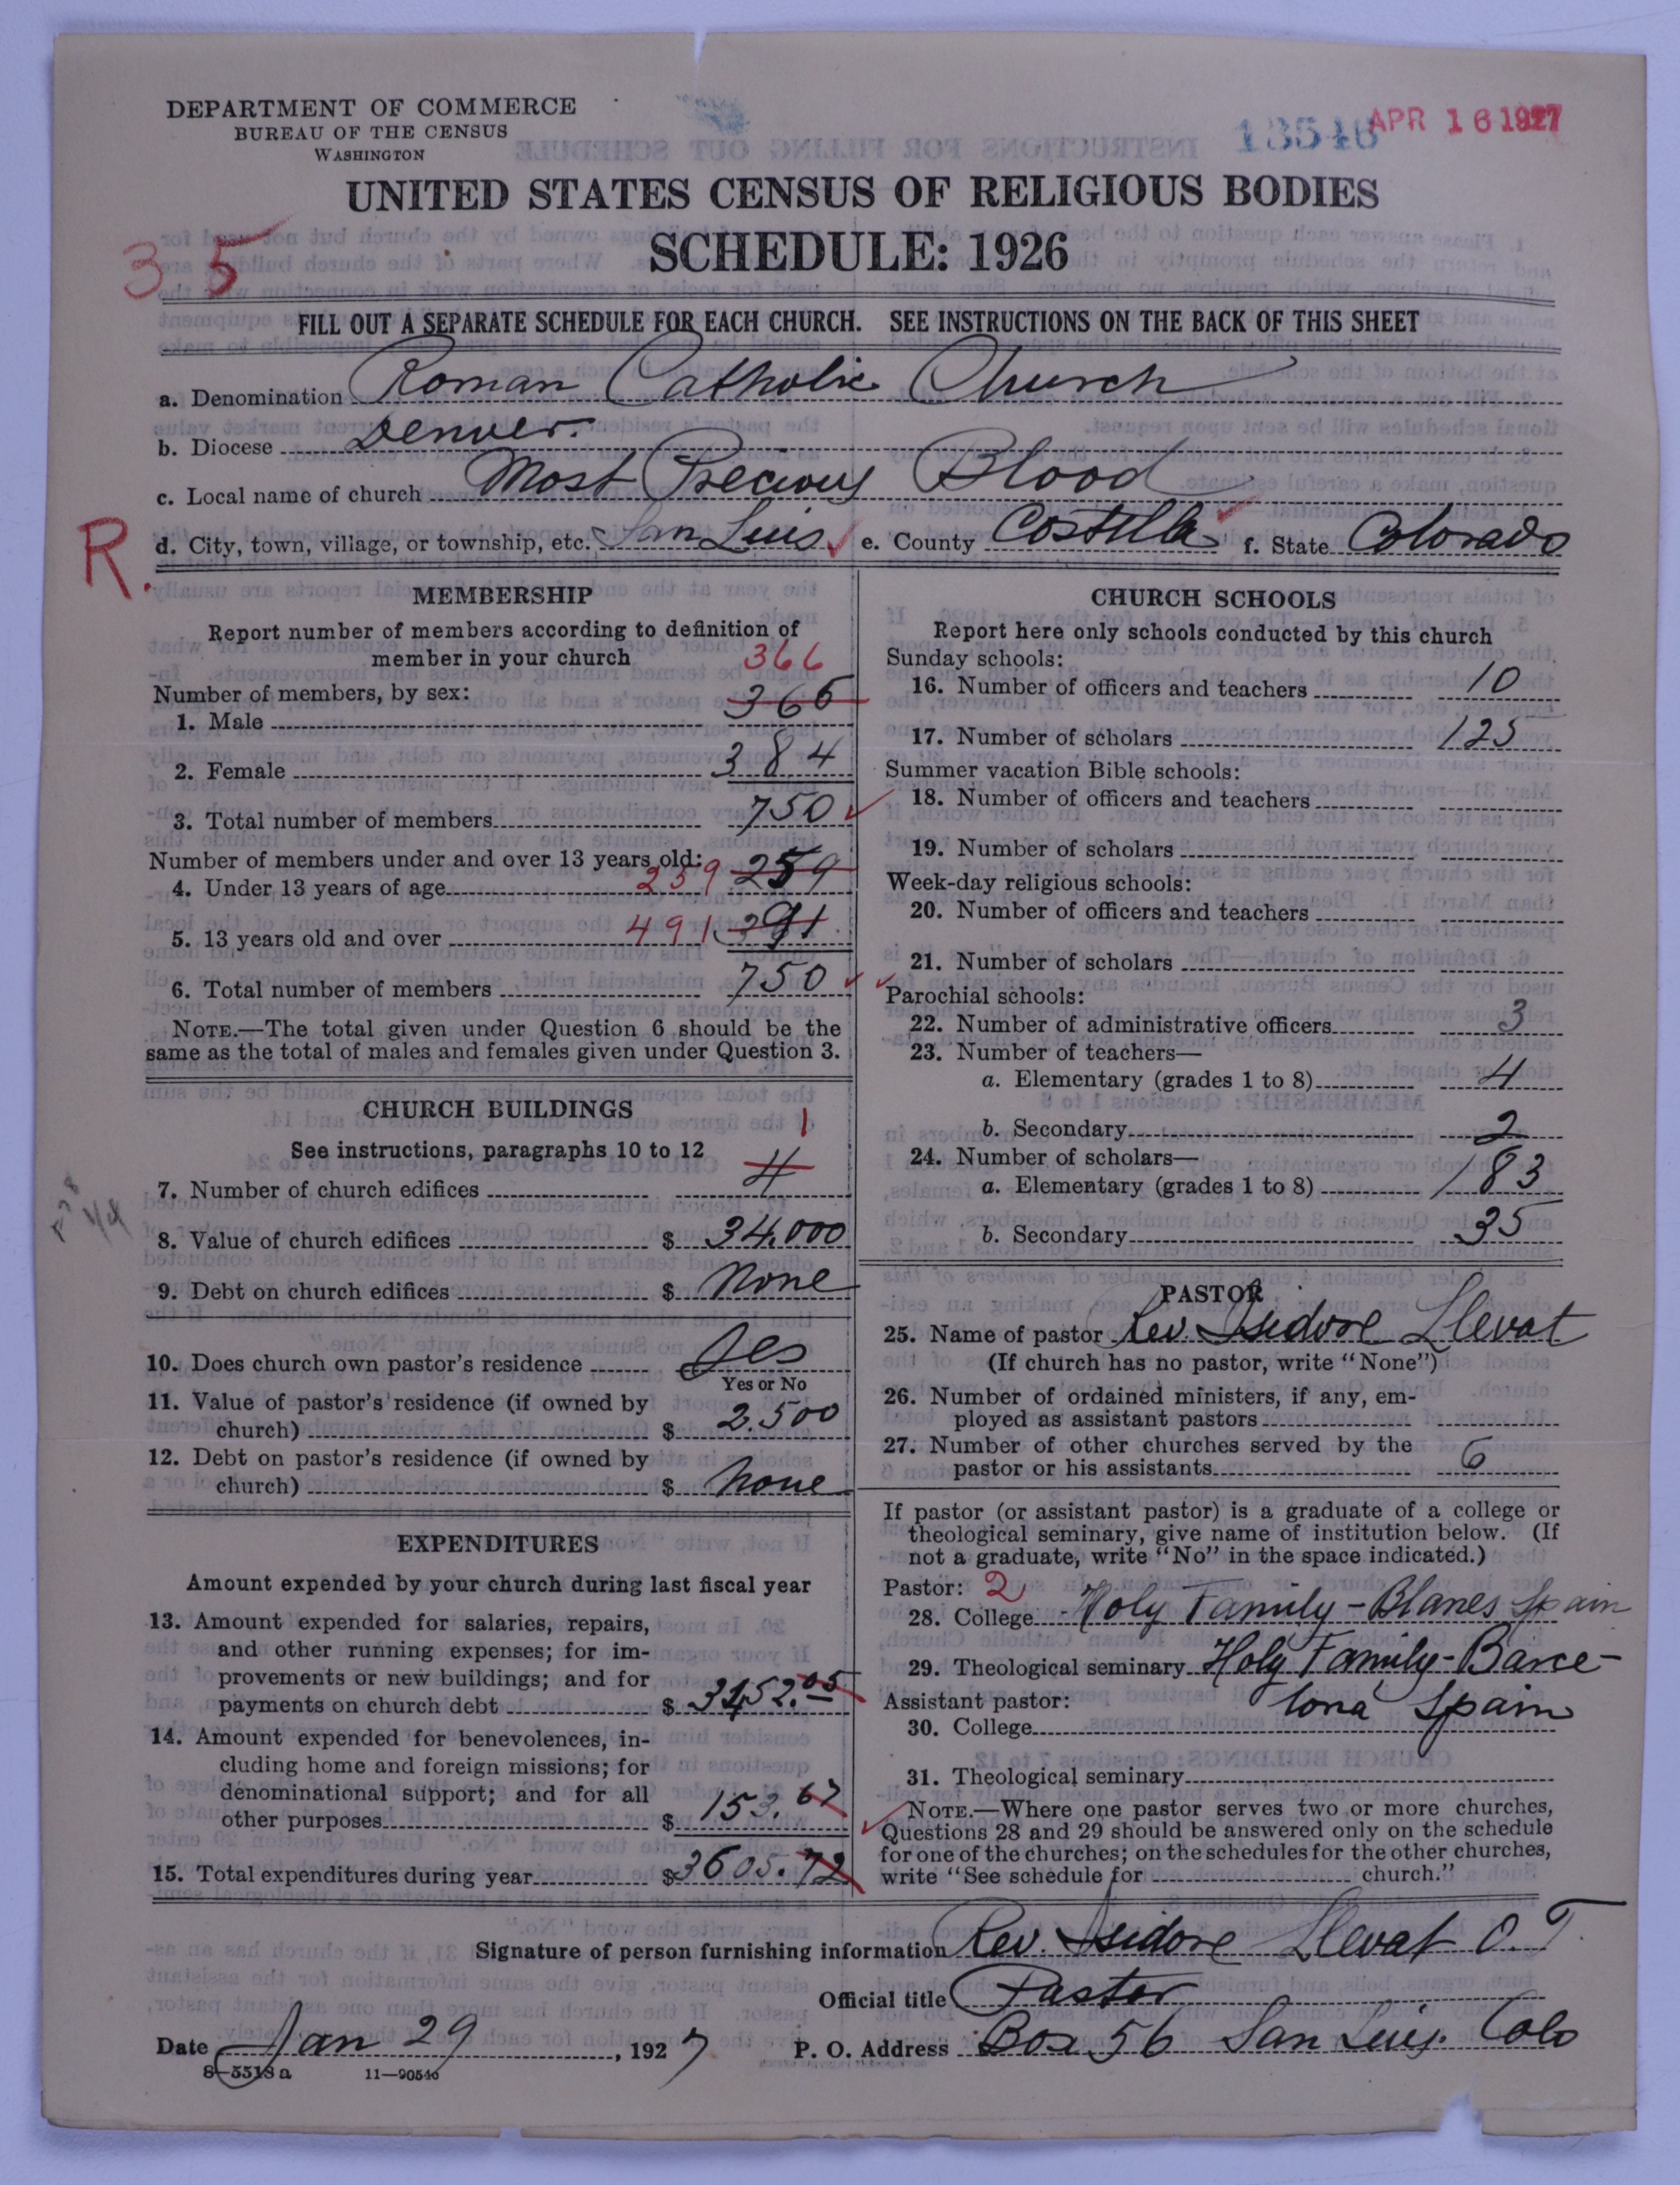 DEPARTMENT OF COMMERCE
BUREAU OF THE CENSUS
WASHINGTON
13546 APR 16 1927
UNITED STATES CENSUS OF RELIGIOUS BODIES
SCHEDULE: 1926
35
FILL OUT A SEPARATE SCHEDULE FOR EACH CHURCH. SEE INSTRUCTIONS ON THE BACK OF THIS SHEET
a. Denomination Roman Catholic Church
b. Diocese Denver.
c. Local name of church Most Precious Blood
R. d. City, town, village, or township, etc. San Luis e. County Costilla f. State Colorado
MEMBERSHIP
Report number of members according to definition of
member in your church 366
Number of members, by sex:
1. Male 366
2. Female 384
3. Total number of members 750
Number of members under and over 13 years old:
4. Under 13 years of age 259 259
5. 13 years old and over 491 291
6. Total number of members 750
NOTE.—The total given under Question 6 should be the
same as the total of males and females given under Question 3.
CHURCH BUILDINGS
See instructions, paragraphs 10 to 12 1
7. Number of church edifices 4
8. Value of church edifices $ 34,000
9. Debt on church edifices $ none
10. Does church own pastor's residence yes
Yes or No
11. Value of pastor's residence (if owned by
church) $ 2.500
12. Debt on pastor's residence (if owned by
church) $ none
EXPENDITURES
Amount expended by your church during last fiscal year
13. Amount expended for salaries, repairs,
and other running expenses; for im-
provements or new buildings; and for
payments on church debt $ 3452.05
14. Amount expended for benevolences, in-
cluding home and foreign missions; for
denominational support; and for all
other purposes $ 153.67
15. Total expenditures during year $ 3605.72
CHURCH SCHOOLS
Report here only schools conducted by this church
Sunday schools:
16. Number of officers and teachers 10
17. Number of scholars 125
Summer vacation Bible schools:
18. Number of officers and teachers
19. Number of scholars
Week-day religious schools:
20. Number of officers and teachers
21. Number of scholars
Parochial schools:
22. Number of administrative officers 3
23. Number of teachers—
a. Elementary (grades 1 to 8) 4
b. Secondary 2
24. Number of scholars—
a. Elementary (grades 1 to 8) 183
b. Secondary 35
PASTOR
25. Name of pastor Rev. Isidore Llevat
(If church has no pastor, write "None")
26. Number of ordained ministers, if any, em-
ployed as assistant pastors
27. Number of other churches served by the
pastor or his assistants 6
If pastor (or assistant pastor) is a graduate of a college or
theological seminary, give name of institution below. (If
not a graduate, write "No" in the space indicated.)
Pastor: 2
28. College Holy Family - Blanes Spain
29. Theological seminary Holy Family - Barce-
Assistant pastor: lona Spain
30. College
31. Theological seminary
NOTE.—Where one pastor serves two or more churches,
Questions 28 and 29 should be answered only on the schedule
for one of the churches; on the schedules for the other churches,
write "See schedule for church."
Signature of person furnishing information Rev. Isidore Llevat O. T.
Official title Pastor
Date Jan 29, 1927 P. O. Address Box 56 San Luis. Colo
8-5513a 11-90546